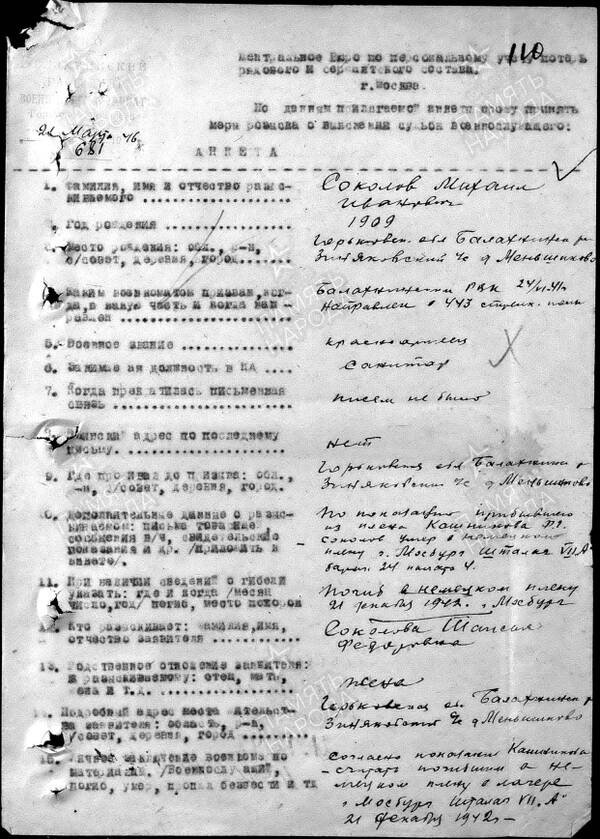 110
Центральное Бюро по персональному учету потерь
рядового и сержантского состава.
г.Москва.
По данным прилагаемой анкеты прошу принять
меры розыска о выяснении судьбы военнослужащего:
21 Марта 46
681
АНКЕТА
1. Фамилия, имя и отчество разыс- Соколов Михаил
киваемого Иванович
Год рождения 1909
Место рождения: обл., р-н, Горьковск. обл Балахнинск р
с/совет, деревня, город Зиняковский с/с д Меньшиково
Каким военкоматом призван, ког- Балахнинским РВК
да, в какую часть и когда нап- Направлен в 443 стрелк. полк
равлен
5. Военное звание красноармеец
6. Занимаемая должность в КА санитар
7. Когда прекратилась письменная
связь писем не было
Воинский адрес по последнему
письму. нет
9. Где проживал до призыва: обл., Горьковская обл Балахнин р
р-н, с/совет, деревня, город. Зиняковский с/с д Меньшиково
10. Дополнительные данные о разыс- По показанию прибывшего
киваемом: письма товарищей из плена Кашникова
сообщения в/ч, свидетельские Соколов умер в немецком
показания и др. /приложить к плену г. Мосбург Шталаг VII "А"
анкете/. барак 24
11. При наличии сведений о гибели
указать: где и когда /месяц Погиб в немецком плену
число, год/ погиб, место похорон 21 декабря 1942 г Мосбург
12. Кто разыскивает: фамилия, имя, Соколова
отчество заявителя Федоровна
13. Родственное отношение заявителя:
к разыскиваемому: отец, мать,
жена и т.д. жена
14. Подробный адрес места жительст- Горьковская об. Балахнинск р
ва заявителя: область, р-н, Зиняковский с/с д Меньшиково
с/совет, деревня, город
15. Личное заключение военкома по согласно показания Кашникова
материалам. /Военнослужащий, считать погибшим в не-
погиб, умер, пропал безвести и тп мецком плену в лагере
г Мосбург Шталаг VII "А"
21 декабря 1942 г
ПАМЯТЬ
НАРОДА